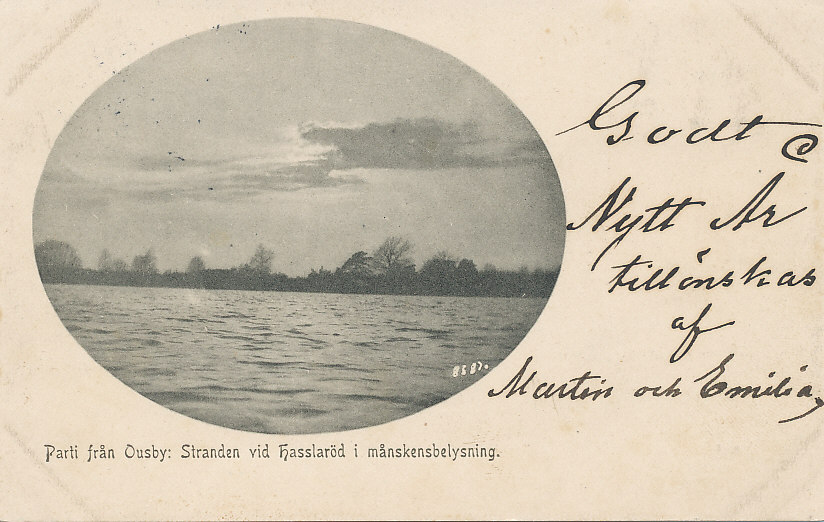 Godt
Nytt År
tillönskas
af
Martin och Emilia,
8587.
Parti från Ousby: Stranden vid Hasslaröd i månskensbelysning.